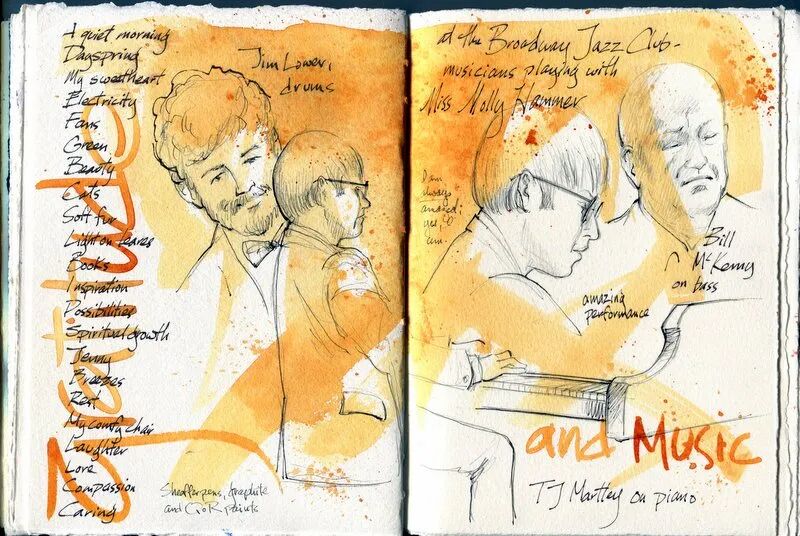 A quiet morning
Dayspring
My sweetheart
Electricity
Fans
Green
Beauty
Cats
Soft fur
Light on leaves
Books
Inspiration
Possibilities
Spiritual growth
Jenny
Breezes
Rest
My comfy chair
Laughter
Love
Compassion
Caring
Gratitude
Jim Lower,
drums
Sheaffer pens, graphite
and QoR paints
at the Broadway Jazz Club-
musicians playing with
Miss Molly Hammer
I am
always
amazed;
yes, I
am.
Bill
McKemy
on bass
amazing
performance
and Music
TJ Martley on piano